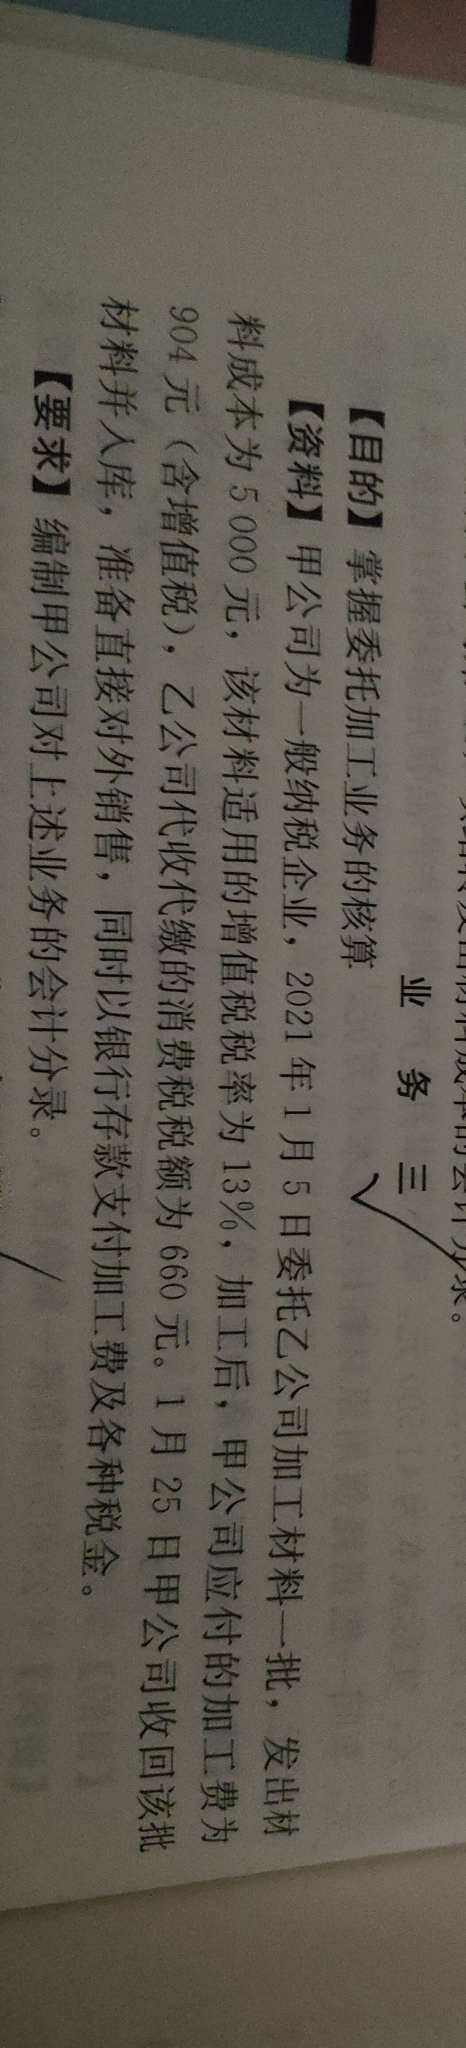 发出材料成本的会计分录。
业 务 三
【目的】掌握委托加工业务的核算
【资料】甲公司为一般纳税企业，2021年1月5日委托乙公司加工材料一批，发出材
料成本为5 000元，该材料适用的增值税税率为13%，加工后，甲公司应付的加工费为
904元（含增值税），乙公司代收代缴的消费税税额为660元。1月25日甲公司收回该批
材料并入库，准备直接对外销售，同时以银行存款支付加工费及各种税金。
【要求】编制甲公司对上述业务的会计分录。